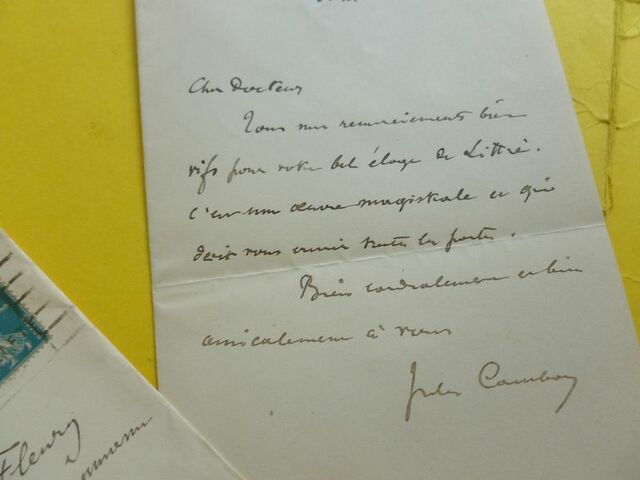 Cher Docteur
Tous mes remerciements bien
vifs pour votre bel éloge de Littré.
C'est une œuvre magistrale et qui
doit vous ouvrir toutes les portes.
Bien cordialement et bien
amicalement à vous
Jules Cambon
Fleury